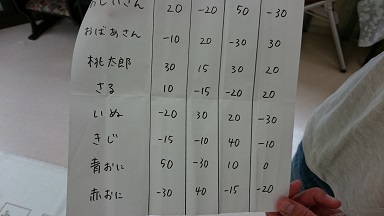 おじいさん 20 -20 50 -30
おばあさん -10 20 -30 30
桃太郎 30 15 30 20
さる 10 -15 -20 20
いぬ -20 30 20 -30
きじ -15 -10 40 -10
青おに 50 -30 10 0
赤おに -30 40 -15 -20